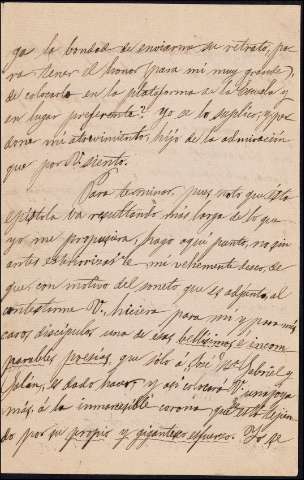 ga la bondad de enviarme su retrato, pa-
ra tener el honor (para mi muy grande)
de colocarlo en la plataforma de la Escuela y
en lugar preferente? Yo se lo suplico, y per-
done mi atrevimiento, hijo de la admiración
que por V. siento.
Para terminar, pues noto que ésta
epístola va resultando más larga de lo que
yo me propusiera, hago aquí punto, no sin
antes le mi vehemente deseo, de
que, con motivo del soneto que es adjunto, al
contestarme V., hiciera para mi y para mis
caros discípulos una de esas bellísimas e incom-
parables poesías, que sólo á José Mª Gabriel y
Galán, es dado hacer, y así colocara V. una joya
más, á la inmarcesible corona que está tejien-
do por su propio y gigantesco esfuerzo. Yo se